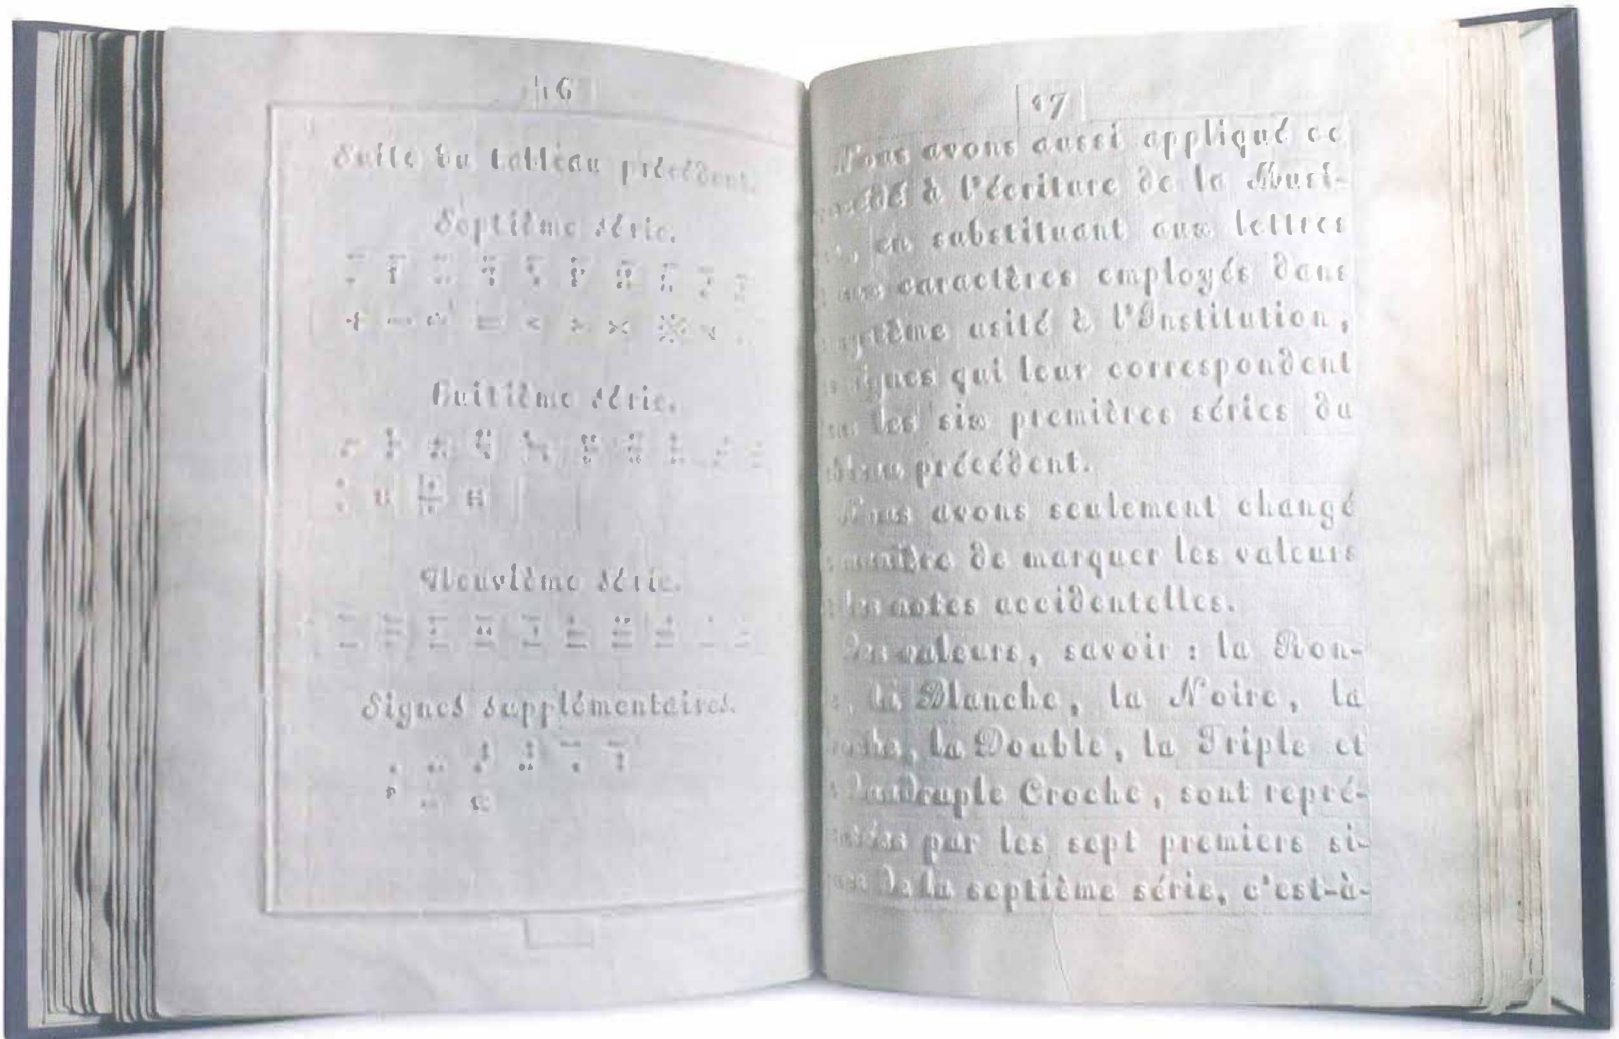 16
Suite du tableau précédent.
Septième série.
+ — = < > ×
Huitième série.
Neuvième série.
Signes supplémentaires.
17
Nous avons aussi appliqué ce
à l'écriture de la Musi-
, en substituant aux lettres
caractères employés dans
système usité à l'Institution,
signes qui leur correspondent
les six premières séries du
précédent.
Nous avons seulement changé
manière de marquer les valeurs
les notes accidentelles.
Les valeurs, savoir : la Ron-
, la Blanche, la Noire, la
, la Double, la Triple et
Quadruple Croche, sont repré-
par les sept premiers si-
de la septième série, c'est-à-